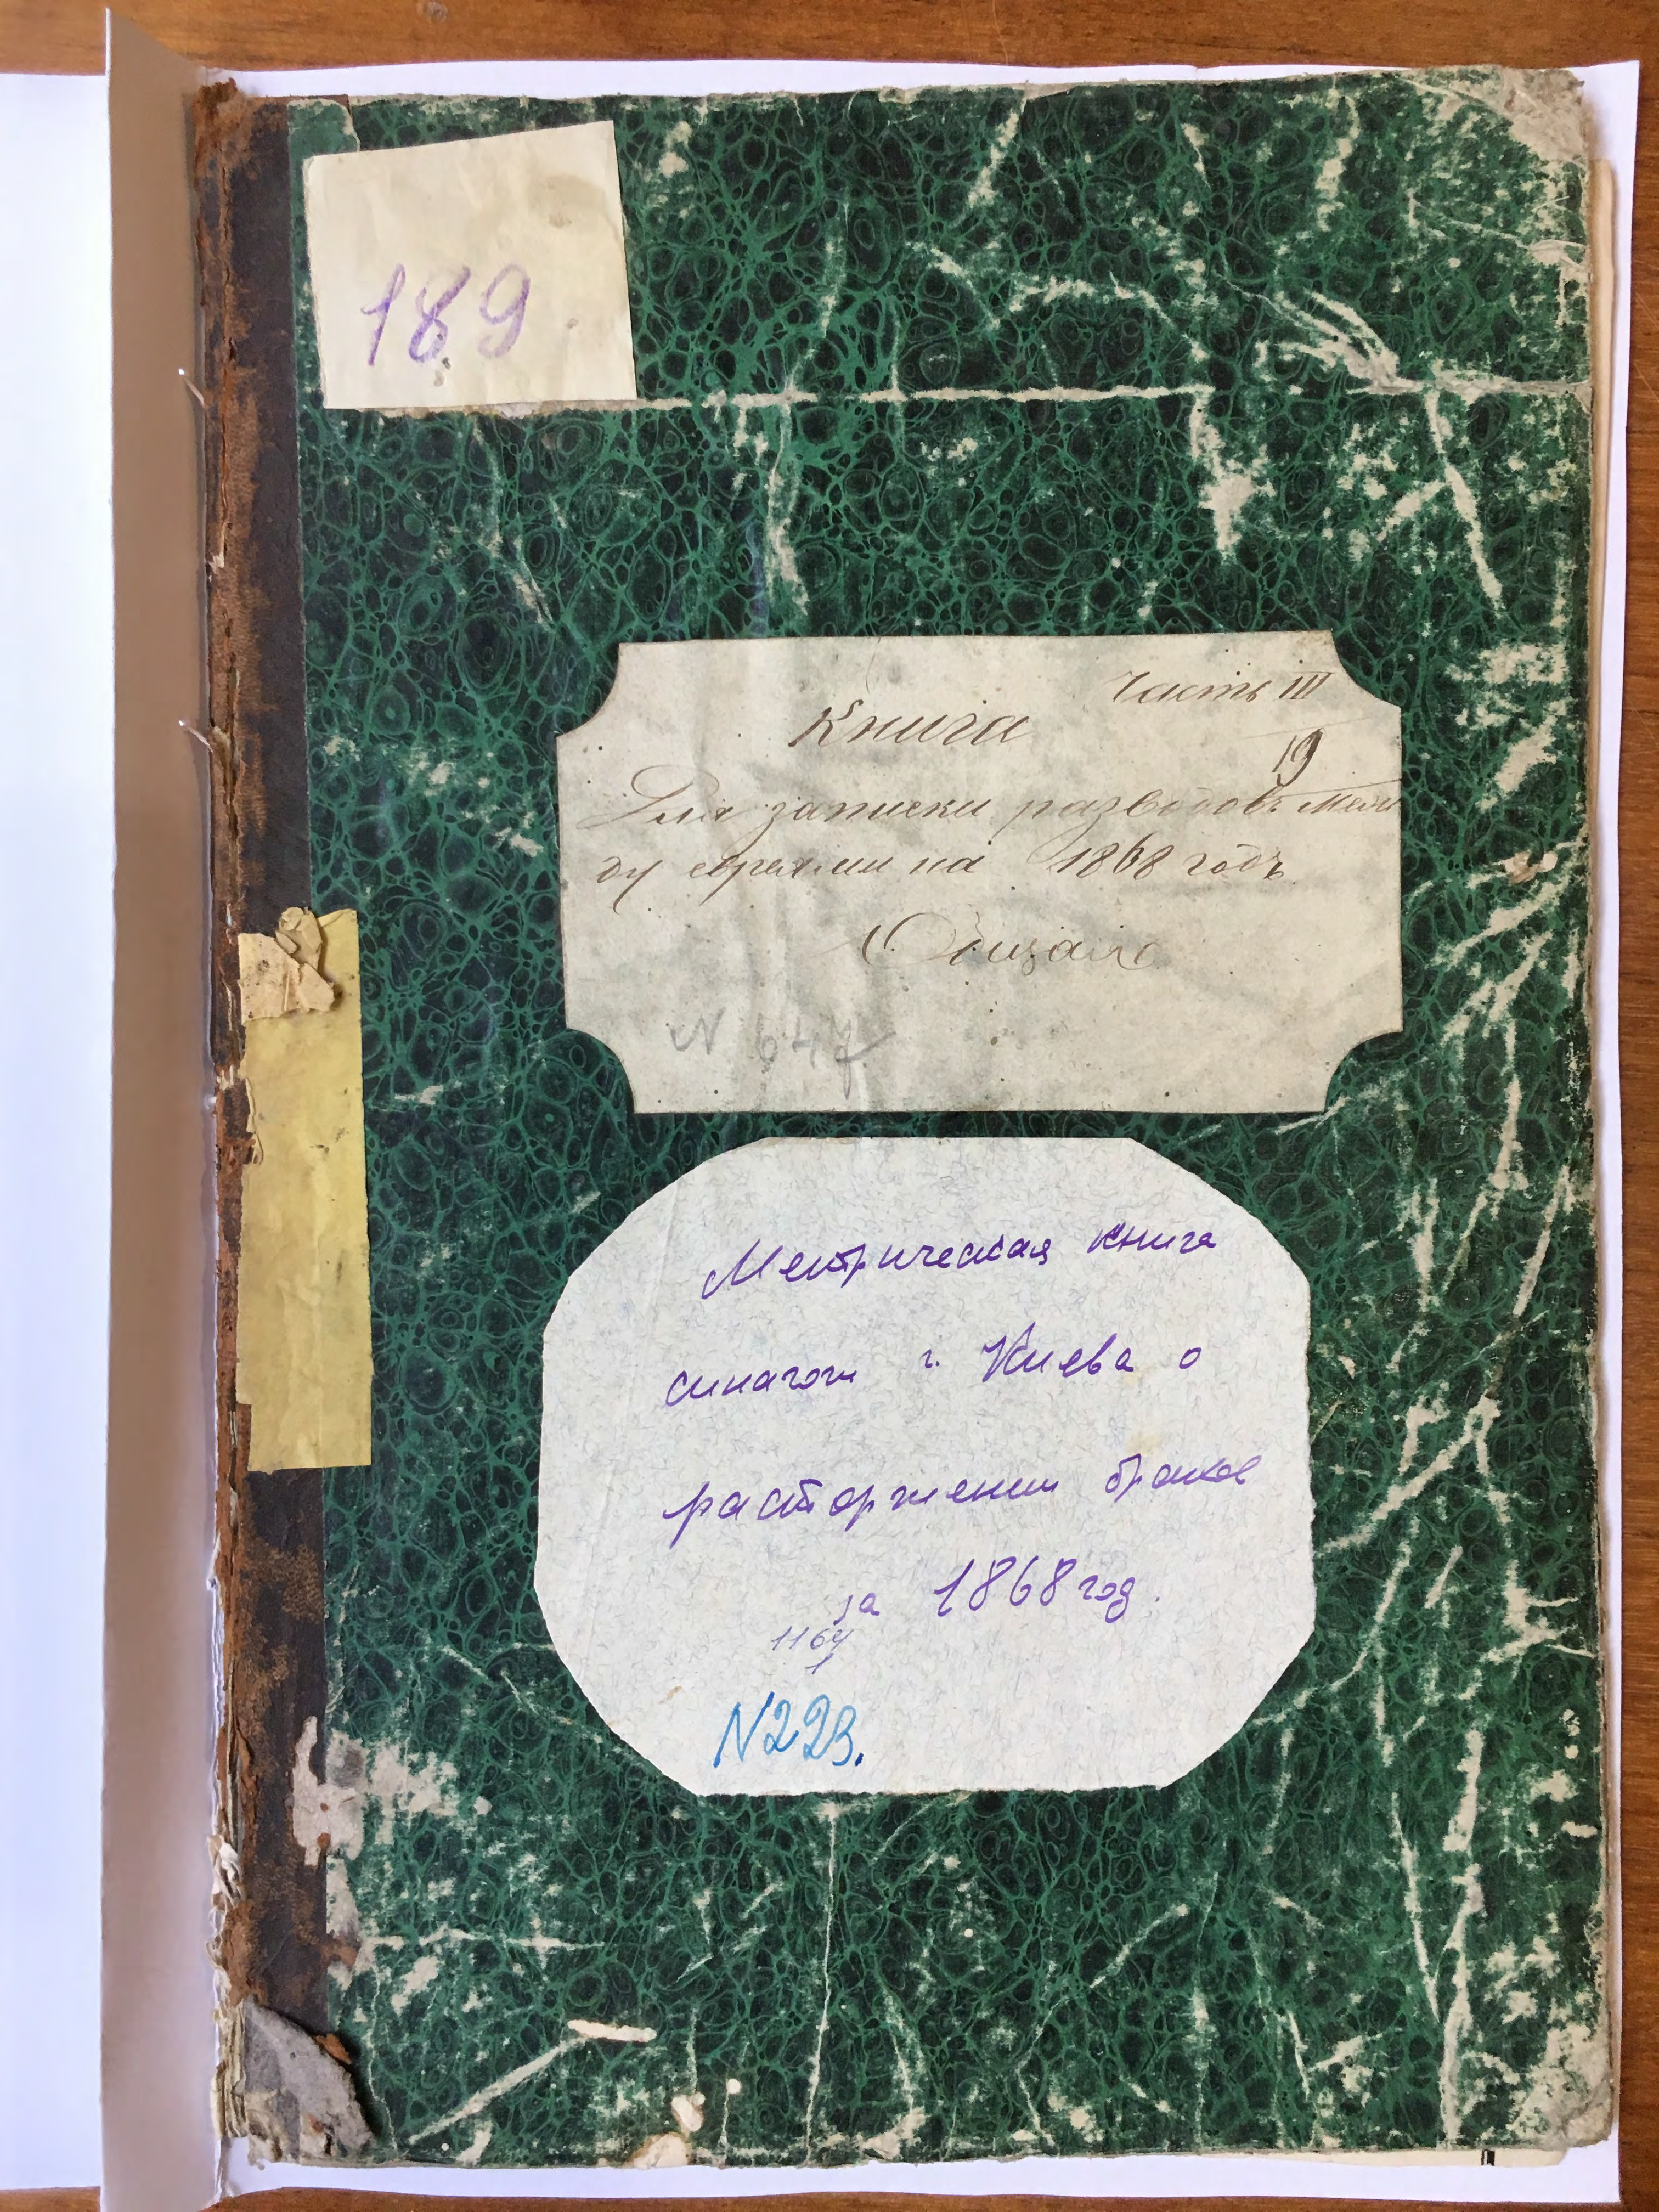 189
Часть III
Книга
19
Для записки разводовъ меж
ду евреями на 1868 годъ
Общая
N 647
Метрическая книга
синагоги г. Киева о
расторжении браков
за 1868 год.
1164
1
N223.